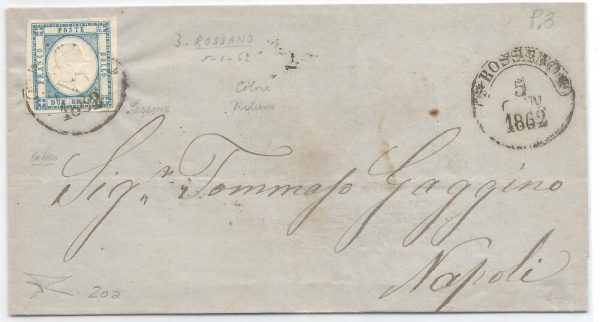 P.3
POSTE
FRANCO
BOLLO
DUE GRANA
3. ROSSANO
5-1-62
ROSSANO
5
GEN
1862
Sassone
Sig.r Tommaso Gaggino
Napoli
202